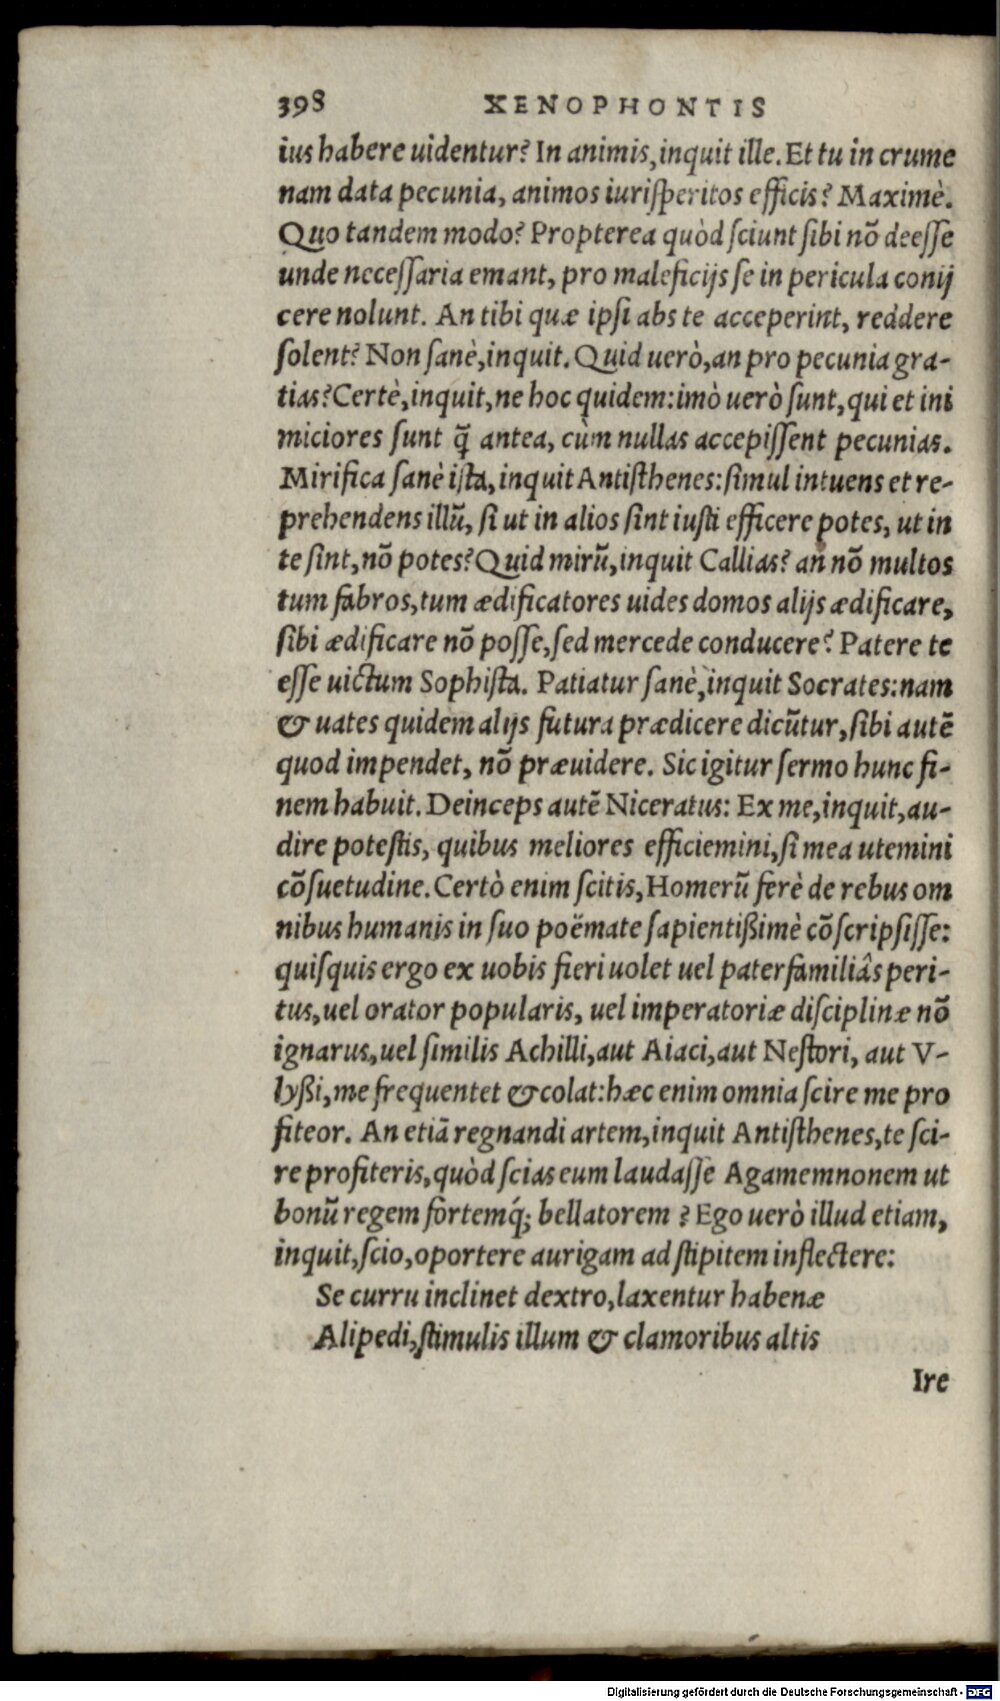 398 XENOPHONTIS
ius habere uidentur? In animis, inquit ille. Et tu in crume
nam data pecunia, animos iurisperitos efficis? Maximè.
Quo tandem modo? Propterea quòd sciunt sibi nō deesse
unde necessaria emant, pro maleficijs se in pericula conij
cere nolunt. An tibi quæ ipsi abs te acceperint, reddere
solent? Non sanè, inquit. Quid uerò, an pro pecunia gra-
tias? Certè, inquit, ne hoc quidem: imò uerò sunt, qui et ini
miciores sunt q̃ antea, cùm nullas accepissent pecunias.
Mirifica sanè ista, inquit Antisthenes: simul intuens et re-
prehendens illũ, si ut in alios sint iusti efficere potes, ut in
te sint, nō potes? Quid mirũ, inquit Callias? an nō multos
tum fabros, tum ædificatores uides domos alijs ædificare,
sibi ædificare nō posse, sed mercede conducere? Patere te
esse uictum Sophista. Patiatur sanè, inquit Socrates: nam
& uates quidem alijs futura prædicere dicũtur, sibi autẽ
quod impendet, nō præuidere. Sic igitur sermo hunc fi-
nem habuit. Deinceps autẽ Niceratus: Ex me, inquit, au-
dire potestis, quibus meliores efficiemini, si mea utemini
cōsuetudine. Certò enim scitis, Homerũ ferè de rebus om
nibus humanis in suo poëmate sapientißimè cōscripsisse:
quisquis ergo ex uobis fieri uolet uel paterfamiliâs peri-
tus, uel orator popularis, uel imperatoriæ disciplinæ nō
ignarus, uel similis Achilli, aut Aiaci, aut Nestori, aut V-
lyßi, me frequentet & colat: hæc enim omnia scire me pro
fiteor. An etiã regnandi artem, inquit Antisthenes, te sci-
re profiteris, quòd scias eum laudasse Agamemnonem ut
bonũ regem fortemq́; bellatorem? Ego uerò illud etiam,
inquit, scio, oportere aurigam ad stipitem inflectere:
Se curru inclinet dextro, laxentur habenæ
Alipedi, stimulis illum & clamoribus altis
Ire
Digitalisierung gefördert durch die Deutsche Forschungsgemeinschaft - DFG